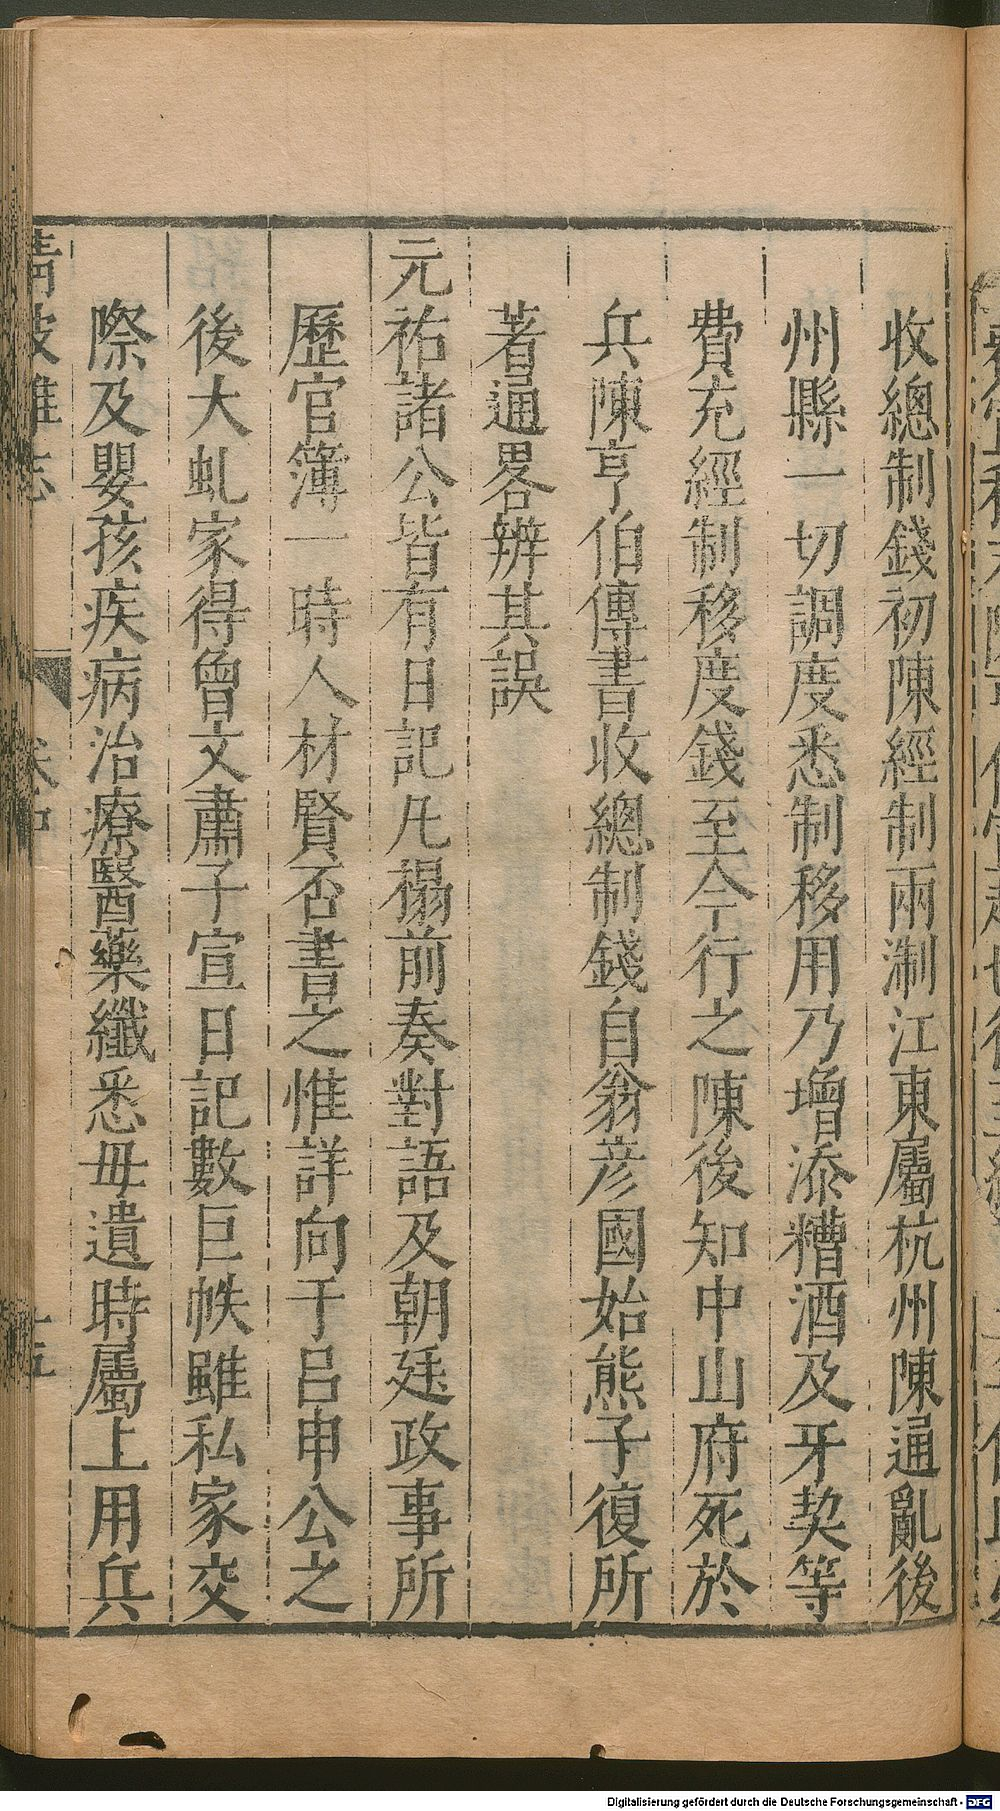 收總制錢初陳經制兩淛江東屬杭州陳通亂後
州縣一切調度悉制移用乃增添糟酒及牙契等
費充經制移度錢至今行之陳後知中山府死於
兵陳亨伯傳書收總制錢自翁彥國始熊子復所
著通畧辨其誤
元祐諸公皆有日記凡榻前奏對語及朝廷政事所
歷官簿一時人材賢否書之惟詳向于呂申公之
後大虬家得曾文肅子宣日記數巨帙雖私家交
際及嬰孩疾病治療醫藥纖悉毋遺時屬上用兵
Digitalisierung gefördert durch die Deutsche Forschungsgemeinschaft - DFG